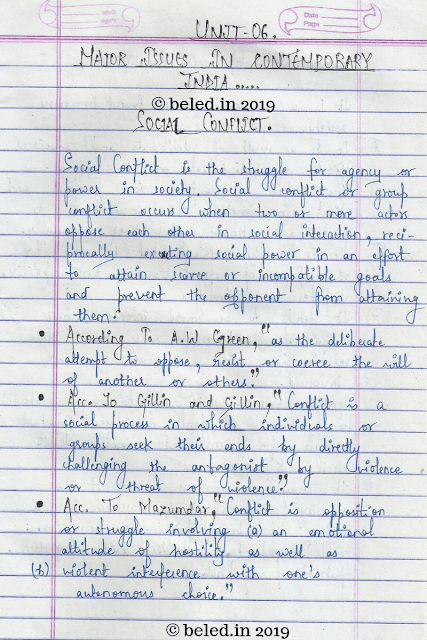 Date
Page
UNIT-06.
MAJOR ISSUES IN CONTEMPORARY
INDIA.....
© beled.in 2019
SOCIAL CONFLICT.
Social Conflict is the struggle for agency or
power in society. Social conflict or group
conflict occurs when two or more actors
oppose each other in social interaction, reci-
procally exerting social power in an effort
to attain scarce or incompatible goals
and prevent the opponent from attaining
them.
• According To A.W Green, "as the deliberate
attempt to oppose, resist or coerce the will
of another or others."
• Acc. To Gillin and Gillin, "Conflict is a
social process in which individuals or
groups seek their ends by directly
challenging the antagonist by violence
or threat of violence."
• Acc. To Mazumdar, "Conflict is opposition
or struggle involving (a) an emotional
attitude of hostility as well as
(b) violent interference with one's
autonomous choice."
© beled.in 2019